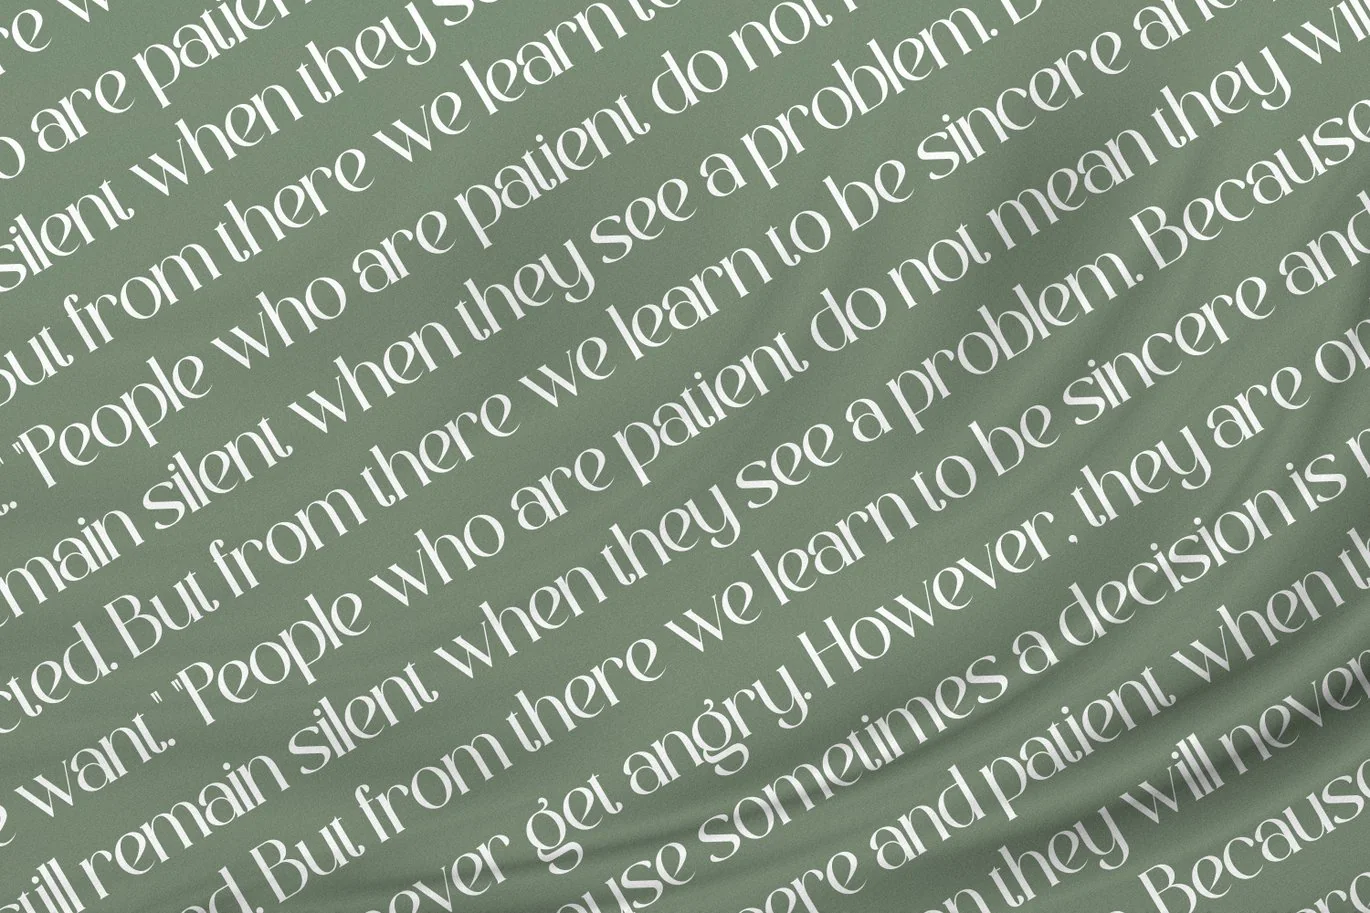 are patien
silent when they se
but from there we learn to
." "People who are patient do not
main silent when they see a problem. B
cted. But from there we learn to be sincere and
want." "People who are patient do not mean they will
still remain silent when they see a problem. Because
ed. But from there we learn to be sincere and
ever get angry. However , they are or
ause sometimes a decision is
ere and patient when th
they will never
Because